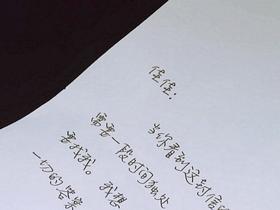 佳佳：
当你看到这封信的
需要一段时间独处
要找我。我想
一切的答案